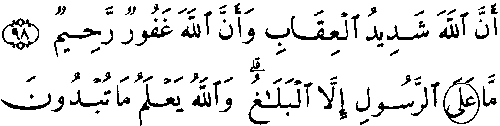 أَنَّ ٱللَّهَ شَدِيدُ ٱلْعِقَابِ وَأَنَّ ٱللَّهَ غَفُورٌ رَّحِيمٌ ﴿٩٨﴾
مَّا عَلَى ٱلرَّسُولِ إِلَّا ٱلْبَلَٰغُ ۗ وَٱللَّهُ يَعْلَمُ مَا تُبْدُونَ